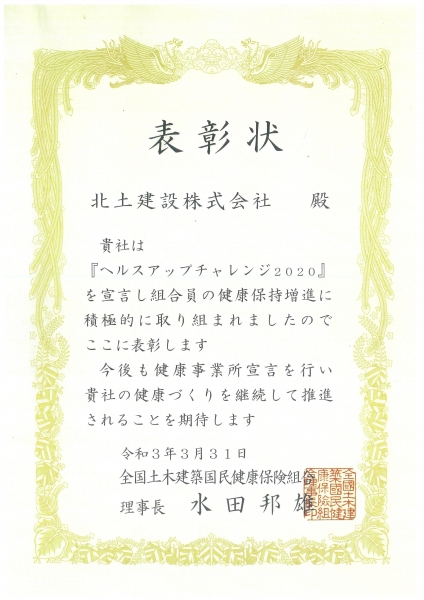 表彰状
北土建設株式会社 殿
貴社は
『ヘルスアップチャレンジ2020』
を宣言し組合員の健康保持増進に
積極的に取り組まれましたので
ここに表彰します
今後も健康事業所宣言を行い
貴社の健康づくりを継続して推進
されることを期待します
令和3年3月31日
全国土木建築国民健康保険組合
理事長 水田邦雄